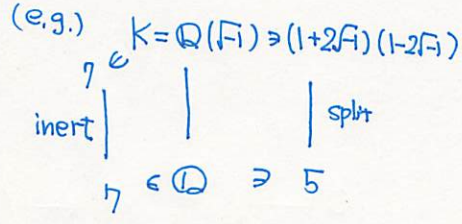 (e.g.)
7 ∈ K = ℚ(√-1) ∋ (1+2√-1)(1-2√-1)
inert | | | split
7 ∈ ℚ ∋ 5